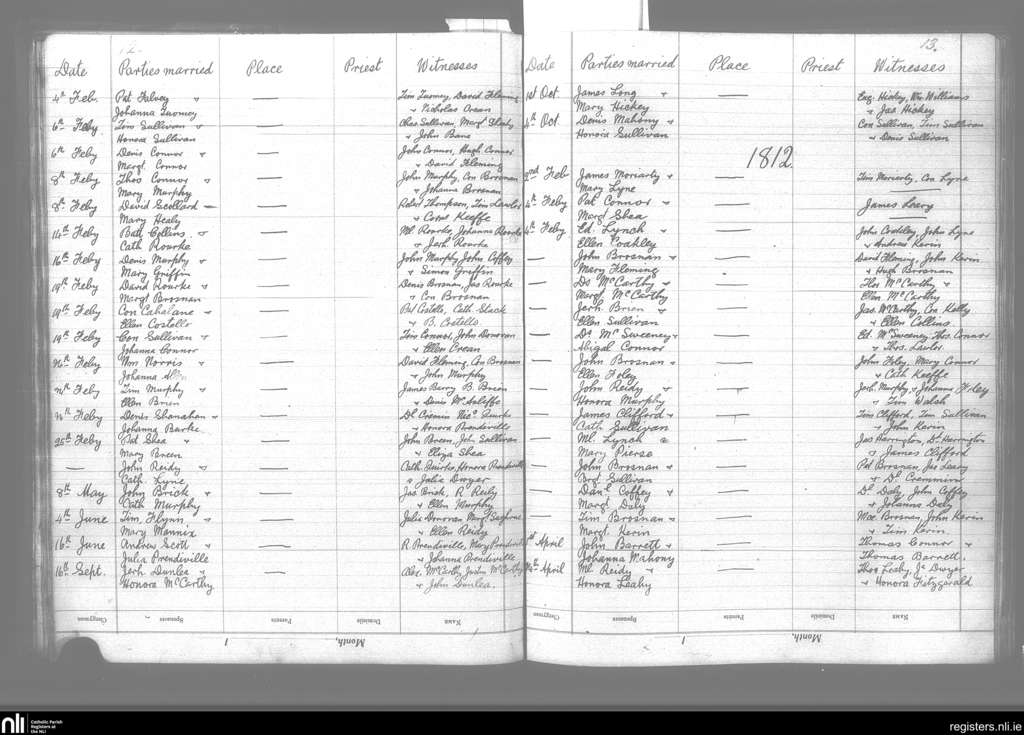 12.
Date Parties married Place Priest Witnesses
4th Feb. Pat Falvey Tim Tuomey, David Fleming
Johanna Tuomey + Nicholas Crean
6th Feby Tim Sullivan Chas Sullivan, Margt
Honora Sullivan + John Bane
6th Feby Denis Connor John Connor, Hugh Connor
Margt. Connor + David Fleming
8th Feby Thos Connor John Murphy, Con Brosnan
Mary Murphy + Johanna Brosnan
8th Feby David Scollard Robert Thompson, Tim Lawlor
Mary Healy + Keeffe
14th Feby Batt Collins Ml Rourke, Johanna Rourke
Cath Rourke + Jerh. Rourke
16th Feby Denis Murphy John Murphy John Coffey
Mary Griffin + Simon Griffin
19th Feby David Rourke Denis Brosnan, Jas Rourke
Margt Brosnan + Con Brosnan
19th Feby Con Cahalane Pat Costello, Cath. Slack
Ellen Costello + B. Costello
19th Feby Con Sullivan Tim Connor, John Donovan
Johanna Connor + Ellen Crean
Feby Wm Norris David Fleming, Con Brosnan
Johanna + John Murphy
Feby Tim Murphy James Barry B. Brien
Ellen Brien + Denis McAuliffe
Feby Denis Shanahan Dl Cronin
Johanna Burke + Honora Prendeville
25th Feby Pat Shea John Breen, Jeh Sullivan
Mary Breen + Eliza Shea
— John Reidy Cath Quirke, Honora Prendeville
Cath. Lyne + Julia Dwyer
8th May John Brick Jas Brick, R Reidy
Cath Murphy + Ellen Murphy
4th June Tim Flynn Julia Donovan Margt
Mary Mannix + Ellen Reidy
16th June Andrew Scott R. Prendiville, Mary Prendiville
Julia Prendiville + Johanna Prendiville
16th Sept. Jerh Dunlea Alex. McCarthy, Justin McCarthy
Honora McCarthy + John Dunlea.
Clergyman Sponsors Parents Domicile Name
Month, 1
13.
Date Parties married Place Priest Witnesses
1st Oct. James Long Eug: Hickey, Wm Williams
Mary Hickey + Jas Hickey
4th Oct. Denis Mahony Con Sullivan, Tim Sullivan
Honora Sullivan + Denis Sullivan
1812
2nd Feb James Moriarty Tim Moriarty, Con Lyne
Mary Lyne
4th Feby Pat Connor James Leary
Margt Shea
4th Feby Ed. Lynch John Coakley, John Lyne
Ellen Coakley + Andrew Kerin
— John Brosnan David Fleming, John Kerin
Mary Fleming + Hugh Brosnan
— Ds McCarthy Thos McCarthy +
Margt McCarthy Ellen McCarthy
— Jerh. Brien Jas. McCarthy, Con Kelly
Ellen Sullivan + Ellen Collins
— Ds. McSweeney Ed. McSweeney Thos. Connor
Abigal Connor + Thos. Lawlor
— John Brosnan John Foley, Mary Connor
Ellen Foley + Cath Keeffe
— John Reidy Jerh. Murphy, + Johanna Foley
Honora Murphy + Tim Walsh
— James Clifford Tim Clifford, Tim Sullivan
Cath Sullivan + John Kerin
— Ml. Lynch Jas Harrington, Ds Harrington
Mary Pierse + James Clifford
— John Brosnan Pat Brosnan, Jas Leary
Brgt Sullivan + Dl Cremmin
— Danl Coffey Dl Daly, John Coffey
Margt Daly + Johanna Daly
— Tim Brosnan Brosnan, John Kerin
Margt. Kerin + Tim Kerin
April John Barrett Thomas Connor +
Johanna Mahony Thomas Barrett.
April Ml. Reidy Thos Leahy, Dwyer
Honora Leahy + Honora Fitzgerald
Clergyman Sponsors Parents Domicile Name
Month, 1
nli Catholic Parish Registers at the NLI
registers.nli.ie